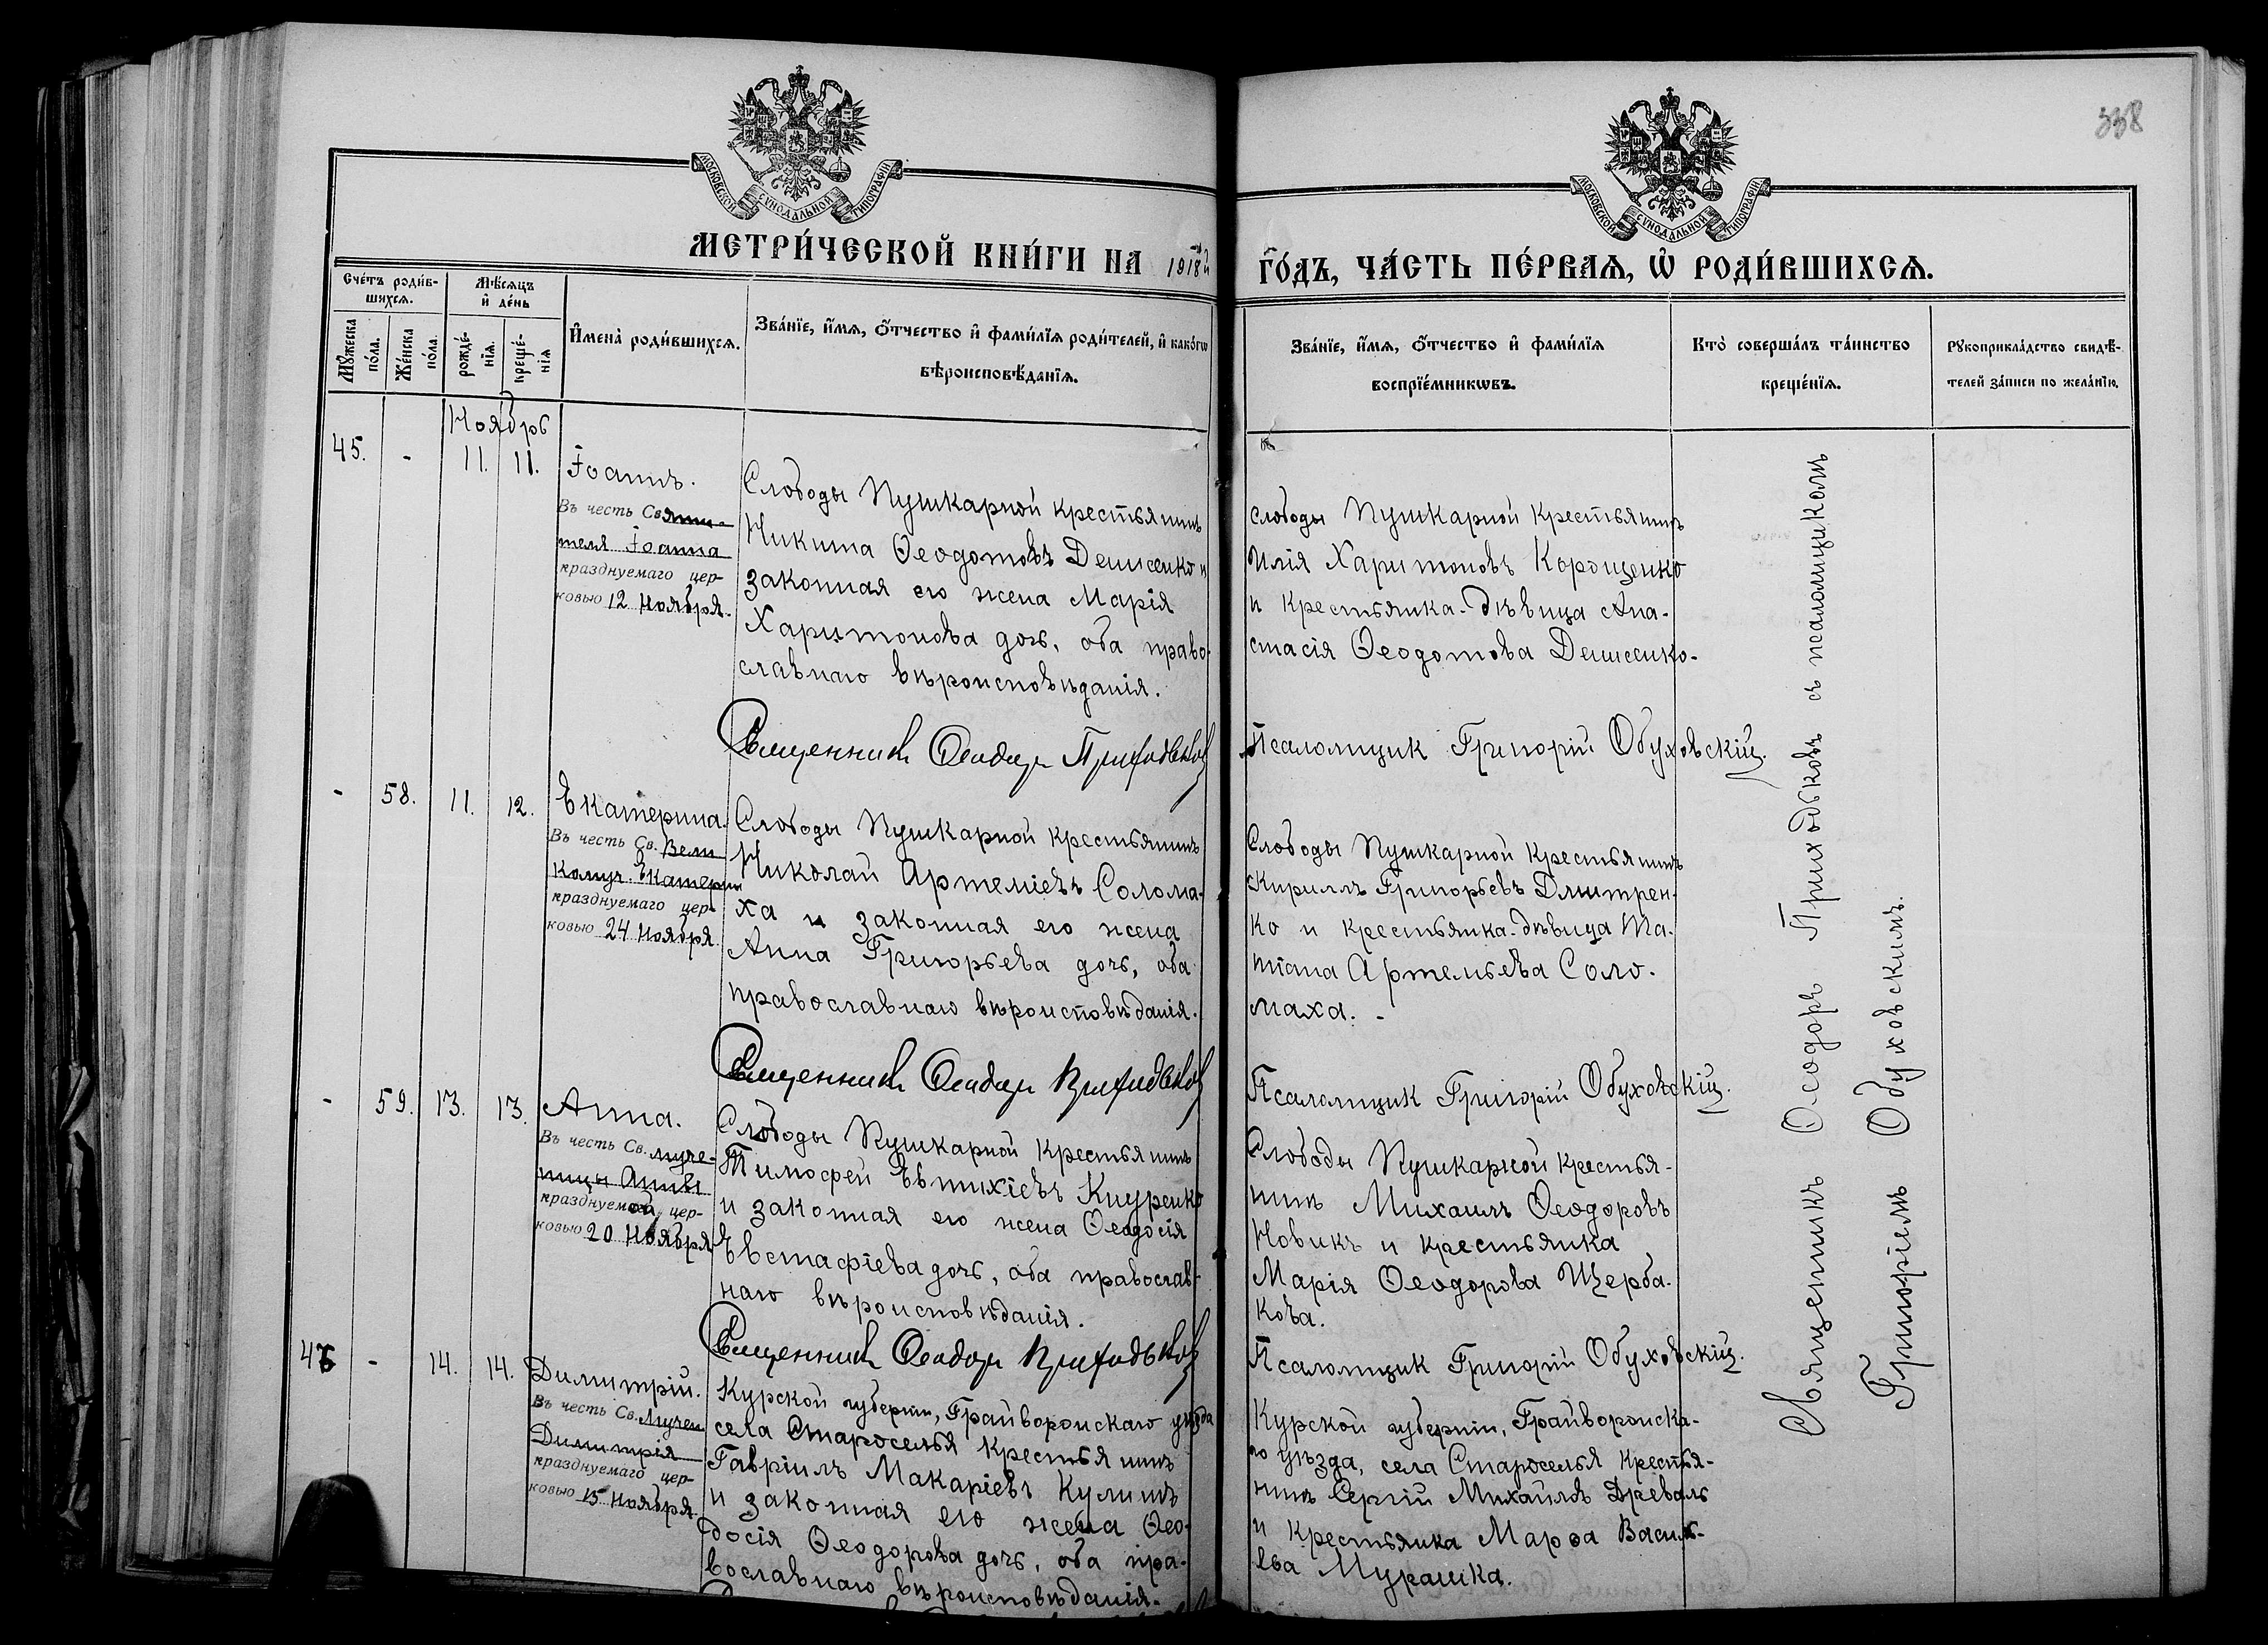 338
МОСКОВСКОЙ СѴНОДАЛЬНОЙ ТИПОГРАФІИ
МОСКОВСКОЙ СѴНОДАЛЬНОЙ ТИПОГРАФІИ
МЕТРИ́ЧЕСКОЙ КНИ́ГИ НА 1918й
ГО́ДЪ, ЧА́СТЬ ПЕ́РВАѦ, Ѡ҆ РОДИ́ВШИХСѦ.
Сче́тъ роди́в-
шихсѧ.
Мѣ́сѧцъ
и҆ де́нь
Мꙋ́жеска
по́ла.
Же́нска
по́ла.
рожде́-
нїѧ.
креще́-
нїѧ
И҆мена̀ роди́вшихсѧ.
Зва́нїе, и҆́мѧ, ѻ҆́тчество и҆ фамилїѧ роди́телей, и҆ како́гѡ
вѣроисповѣ́данїѧ.
Зва́нїе, и҆́мѧ, ѻ҆́тчество и҆ фами́лїѧ
воспрїе́мникѡвъ.
Кто̀ соверша́лъ та́инство
креще́нїѧ.
Рꙋкоприкла́дство свидѣ́-
телей за́писи по жела́нїю.
Ноябрь
45.
-
11.
11.
Іоаннъ.
Въ честь Святи-
теля Іоанна
празднуемаго цер-
ковью 12 Ноября.
Слободы Пушкарной крестьянинъ
Никита Ѳеодотовъ Денисенко и
законная его жена Марія
Харитонова дочь, оба право-
славнаго вѣроисповѣданія.
Священникъ Ѳеодоръ Приходьковъ
слободы Пушкарной крестьянинъ
Илія Харитоновъ Корощенко
и крестьянка-дѣвица Ана-
стасія Ѳеодотова Денисенко-
Псаломщик Григорій Обуховскій.
-
58.
11.
12.
Екатерина.
Въ честь Св. Вели
комуч. Екатерин
празднуемаго цер-
ковью 24 Ноября.
Слободы Пушкарной крестьянинъ
Николай Артеміевъ Солома-
ха и законная его жена
Анна Григорьева дочь, оба
православнаго вѣроисповѣданія.
Священникъ Ѳеодоръ Приходьковъ
Слободы Пушкарной крестьянинъ
Кириллъ Григорьевъ Дмитрен-
ко и крестьянка-дѣвица Та-
тіана Артемьева Соло-
маха. -
Псаломщик Григорій Обуховскій.
-
59.
13.
13.
Анна.
Въ честь Св. муче-
ницы Анны
празднуемой цер-
ковью 20 Ноября
Слободы Пушкарной крестьянинъ
Тимофей Евтихіевъ Кнуренко
и законная его жена Ѳеодосія
Евстафіева дочь, оба православ-
наго вѣроисповѣданія.
Священникъ Ѳеодоръ Приходьковъ
Слободы Пушкарной крестья-
нинъ Михаилъ Ѳеодоровъ
Новикъ и крестьянка
Марія Ѳеодорова Щерба-
кова.
Псаломщик Григорій Обуховскій.
46
-
14.
14.
Димитрій.
Въ честь Св. Мучен
Димитрія
празднуемаго цер-
ковью 15 Ноября.
Курской губерніи, Грайворонскаго уѣзда
села Староселья крестьянинъ
Гавріилъ Макаріевъ Кулишъ
и законная его жена Ѳео-
досія Ѳеодорова дочь, оба пра-
вославнаго вѣроисповѣданія.
Курской губерніи, Грайворонска-
го уѣзда, села Староселья крестья-
нинъ Сергій Михайловъ Древаль
и крестьянка Марѳа Василь-
ева Мурашка.
Священникъ Ѳеодоръ Приходьковъ съ псаломщикомъ
Григоріемъ Обуховскимъ.